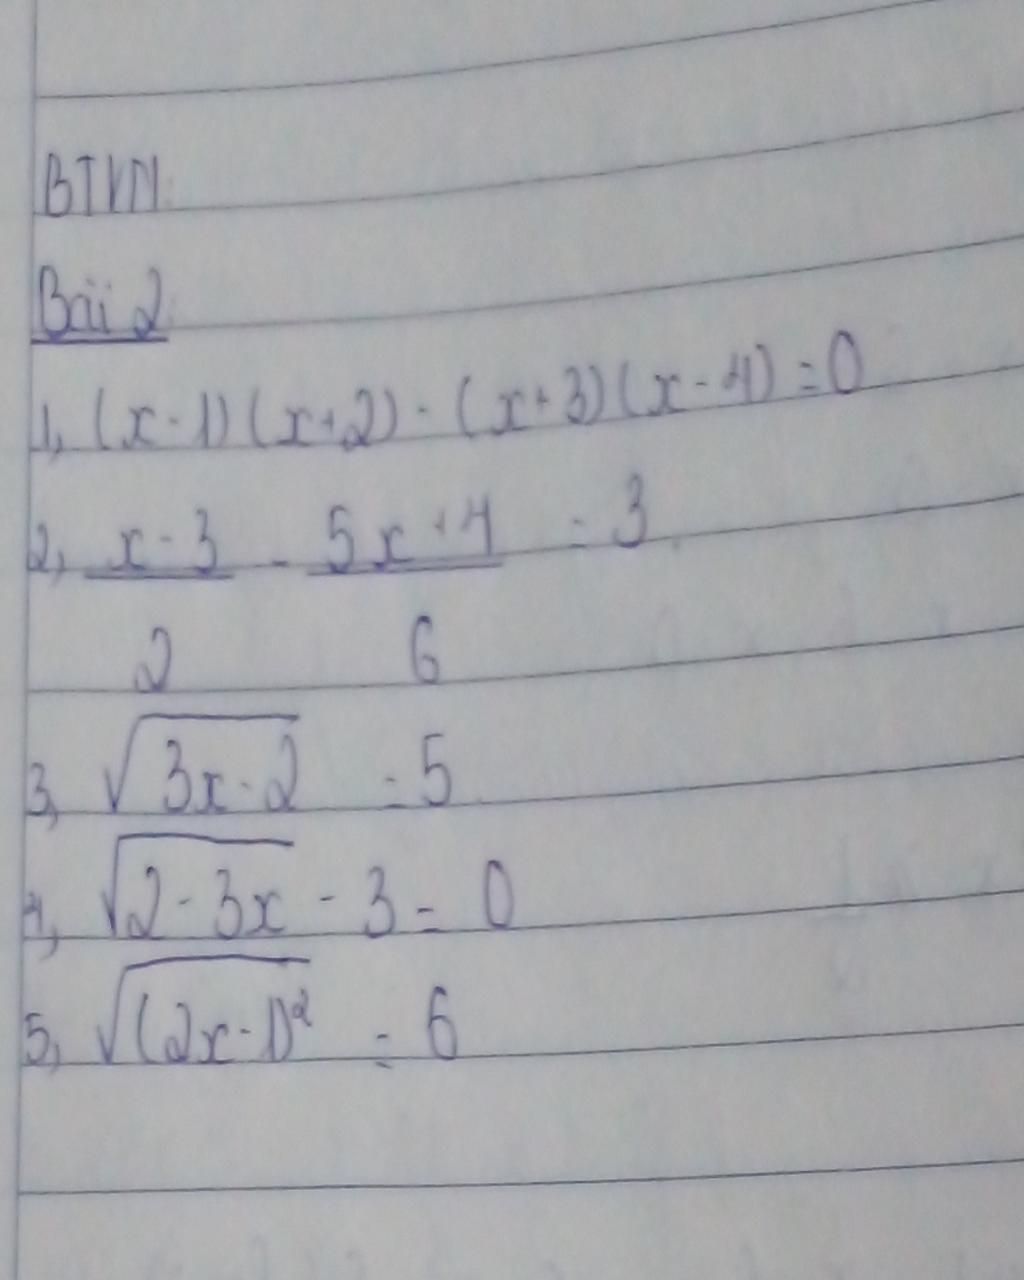 BTVN:
Bài 2:
1, (x-1)(x+2) - (x+3)(x-4) = 0
2, x-3 - 5x+4 = 3
2 6
3, √3x-2 = 5
4, √2-3x - 3 = 0
5, √(2x-1)² = 6